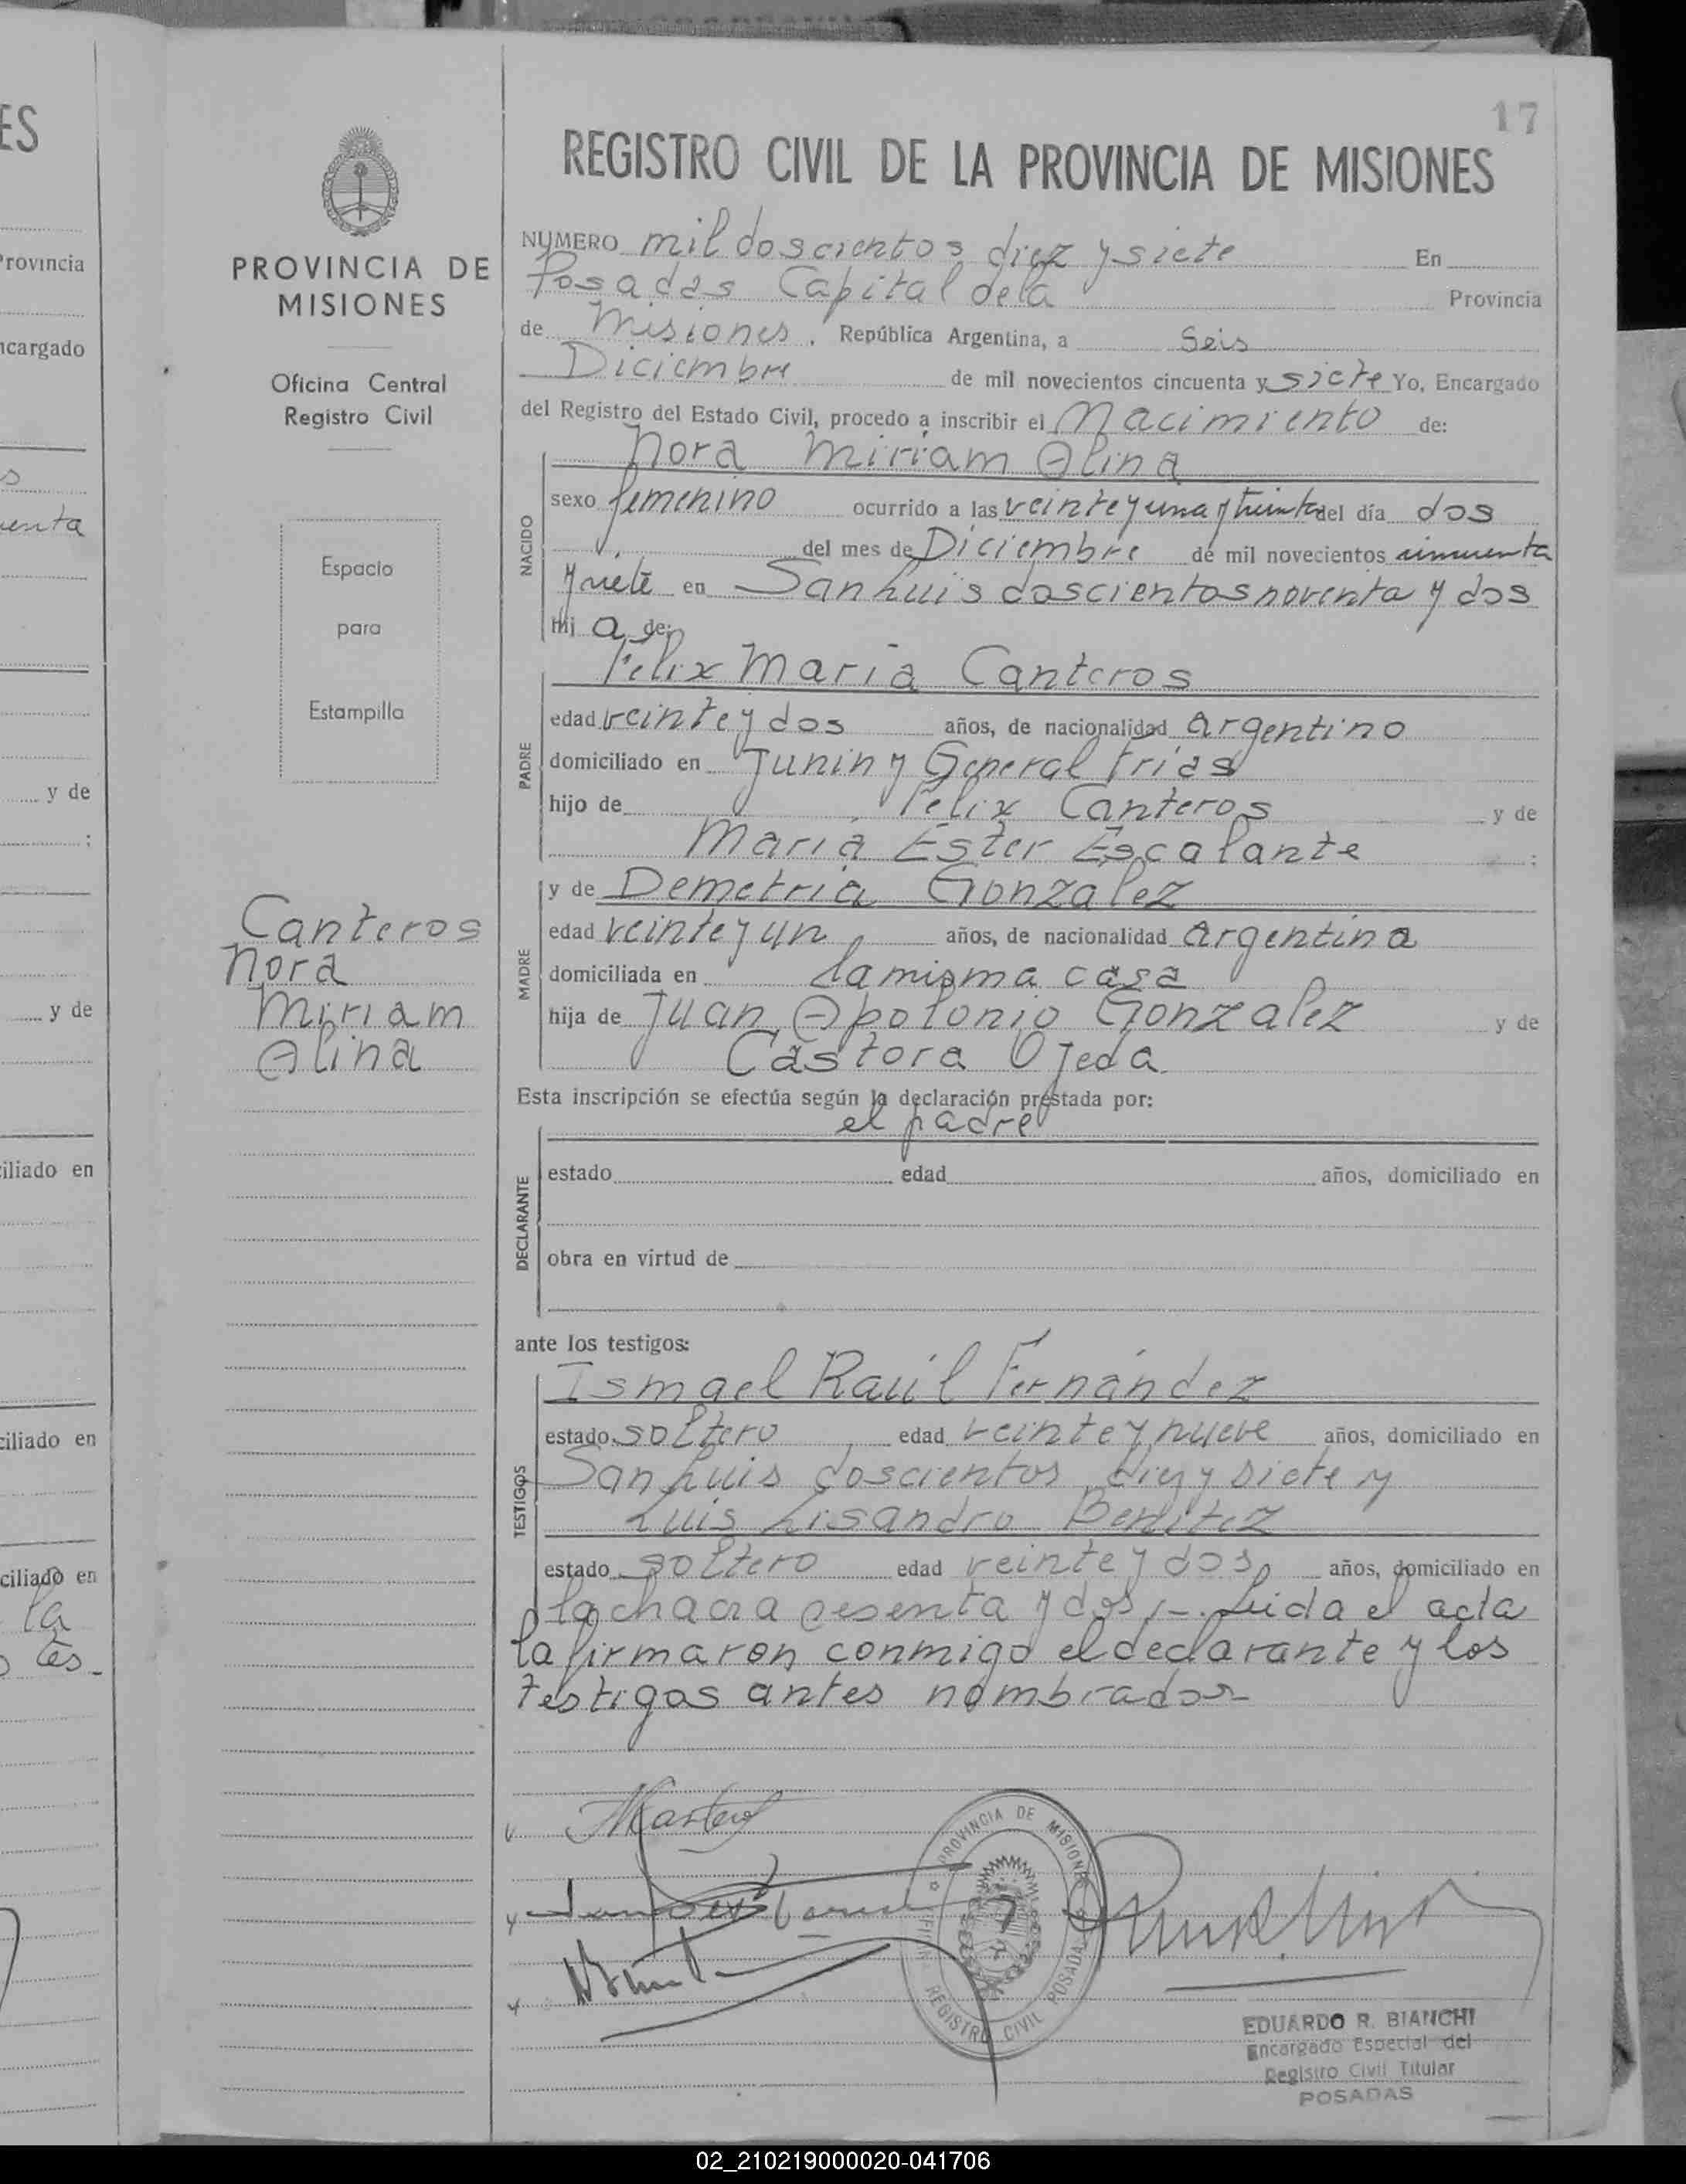 17
REGISTRO CIVIL DE LA PROVINCIA DE MISIONES
PROVINCIA DE
MISIONES
Oficina Central
Registro Civil
Espacio
para
Estampilla
Canteros
Nora
Miriam
Alina
NUMERO mil doscientos diez y siete En
Posadas Capital de la Provincia
de Misiones, República Argentina, a Seis
Diciembre de mil novecientos cincuenta y siete Yo, Encargado
del Registro del Estado Civil, procedo a inscribir el Nacimiento de:
NACIDO
Nora Miriam Alina
sexo femenino ocurrido a las veinte y una y treinta del día dos
del mes de Diciembre de mil novecientos cincuenta
y siete en San Luis doscientos noventa y dos
hij a de:
PADRE
Felix Maria Canteros
edad veinte y dos años, de nacionalidad Argentino
domiciliado en Junin y General Frias
hijo de Felix Canteros y de
Maria Ester Escalante ;
MADRE
y de Demetria Gonzalez
edad veinte y un años, de nacionalidad Argentina
domiciliada en la misma casa
hija de Juan Apolonio Gonzalez y de
Castora Ojeda
Esta inscripción se efectúa según la declaración prestada por:
el padre
DECLARANTE
estado edad años, domiciliado en
obra en virtud de
ante los testigos:
TESTIGOS
Ismael Raúl Fernández
estado soltero edad veinte y nueve años, domiciliado en
San Luis doscientos diez y siete y
Luis Lisandro Benitez
estado soltero edad veinte y dos años, domiciliado en
la chacra sesenta y dos,-. Leida el acta
la firmaron conmigo el declarante y los
testigos antes nombrados
PROVINCIA DE MISIONES
REGISTRO CIVIL POSADAS
EDUARDO R. BIANCHI
Encargado Especial del
Registro Civil Titular
POSADAS
ES
Provincia
ncargado
enta
y de
;
y de
iliado en
ciliado en
ciliado en
la
02_210219000020-041706